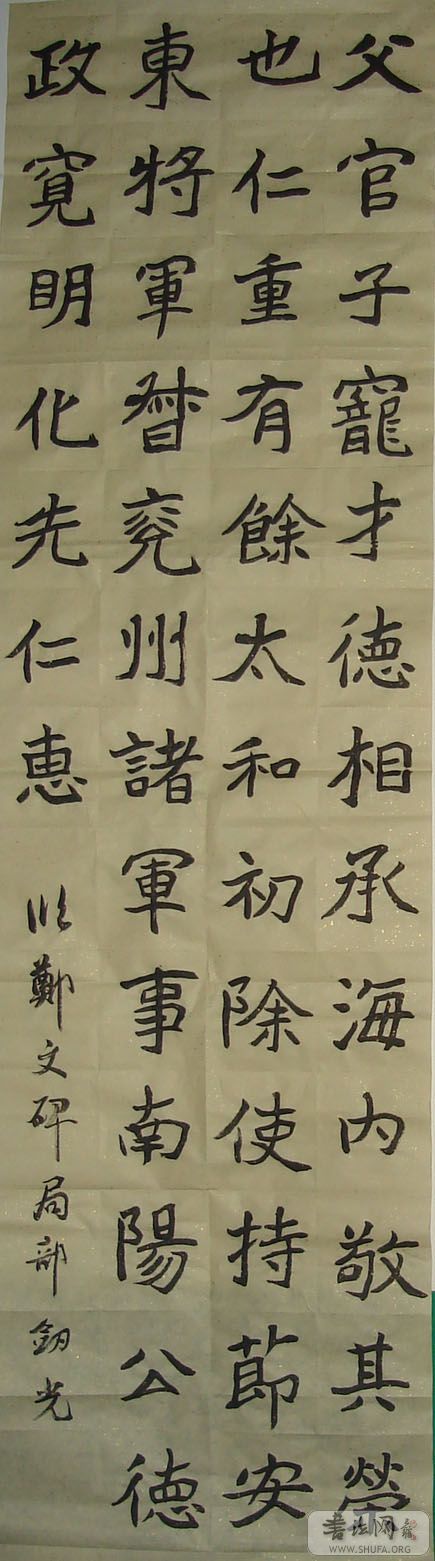 父官子寵才德相承海内敬其榮
也仁重有餘太和初除使持節安
東將軍督兖州諸軍事南陽公德
政寬明化先仁惠
临鄭文碑局部 劍光
書法网
WWW.SHUFA.ORG